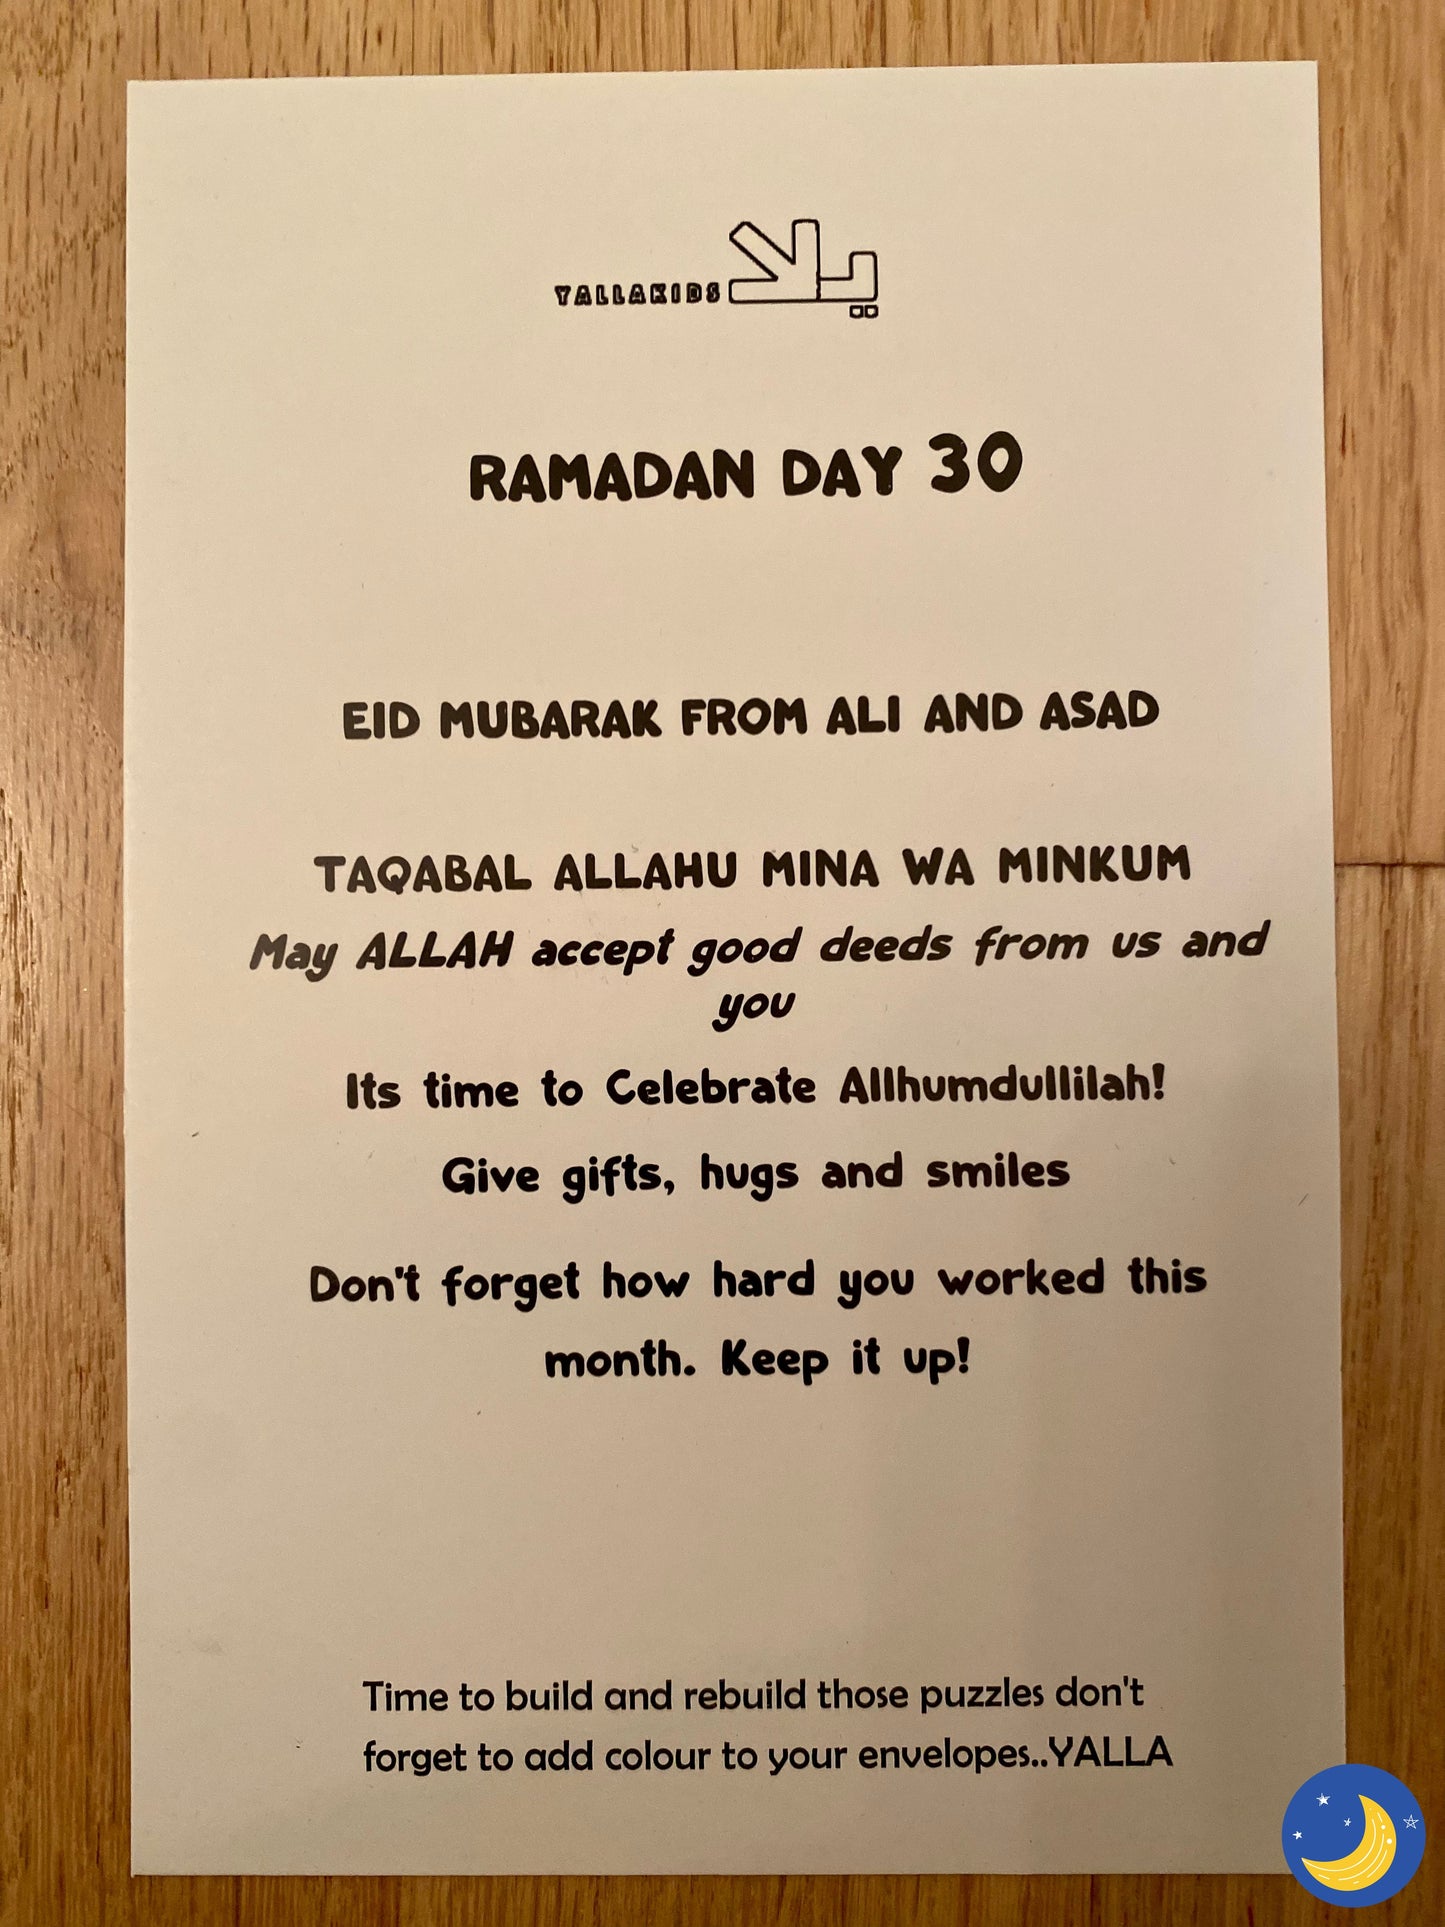 YALLAKIDS يلا
RAMADAN DAY 30
EID MUBARAK FROM ALI AND ASAD
TAQABAL ALLAHU MINA WA MINKUM
May ALLAH accept good deeds from us and
you
Its time to Celebrate Allhumdullilah!
Give gifts, hugs and smiles
Don't forget how hard you worked this
month. Keep it up!
Time to build and rebuild those puzzles don't
forget to add colour to your envelopes..YALLA